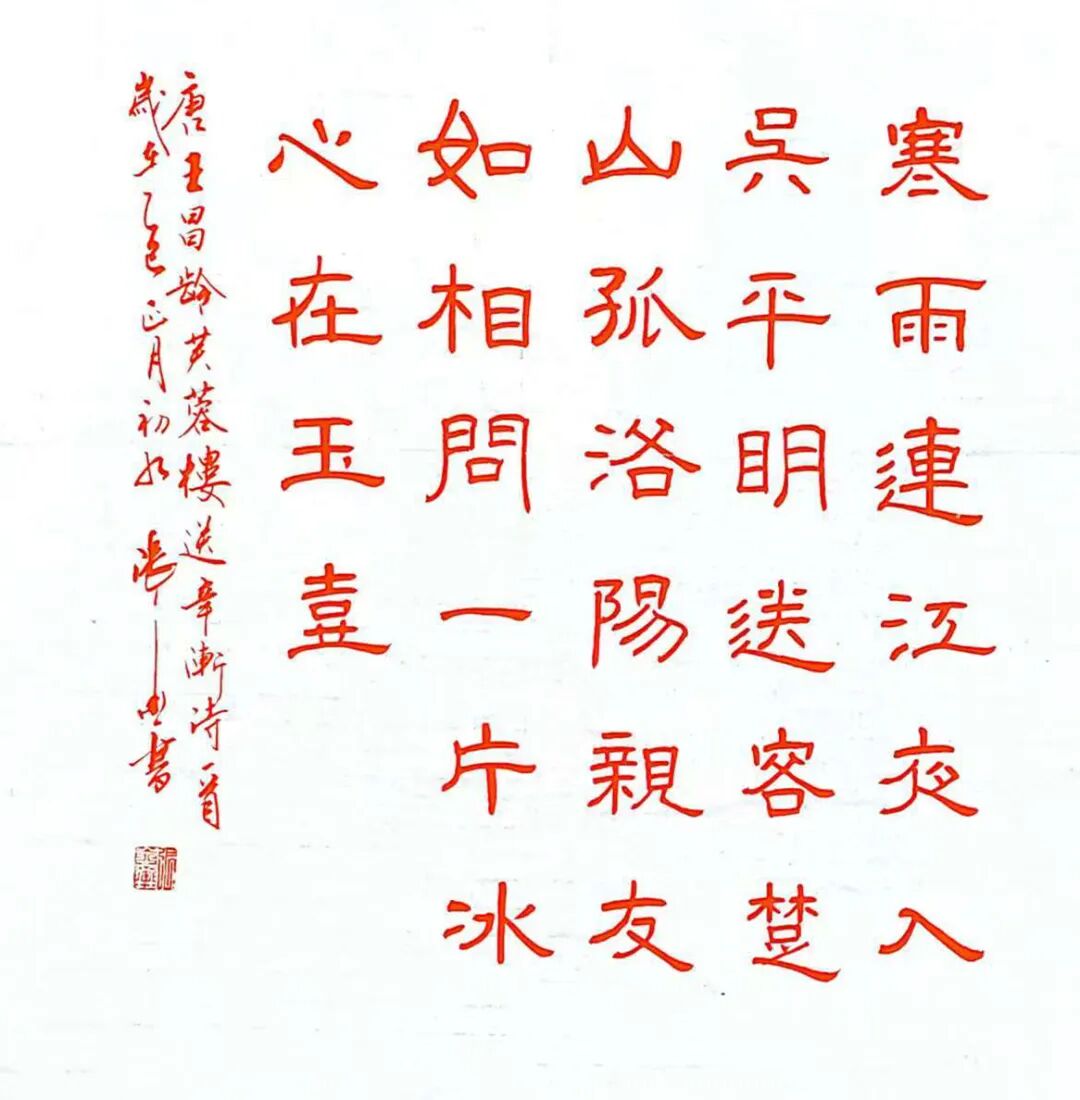 寒雨連江夜入
吳平明送客楚
山孤洛陽親友
如相問一片冰
心在玉壺
唐王昌齡芙蓉樓送辛漸詩一首
歲在乙巳正月初 張 書